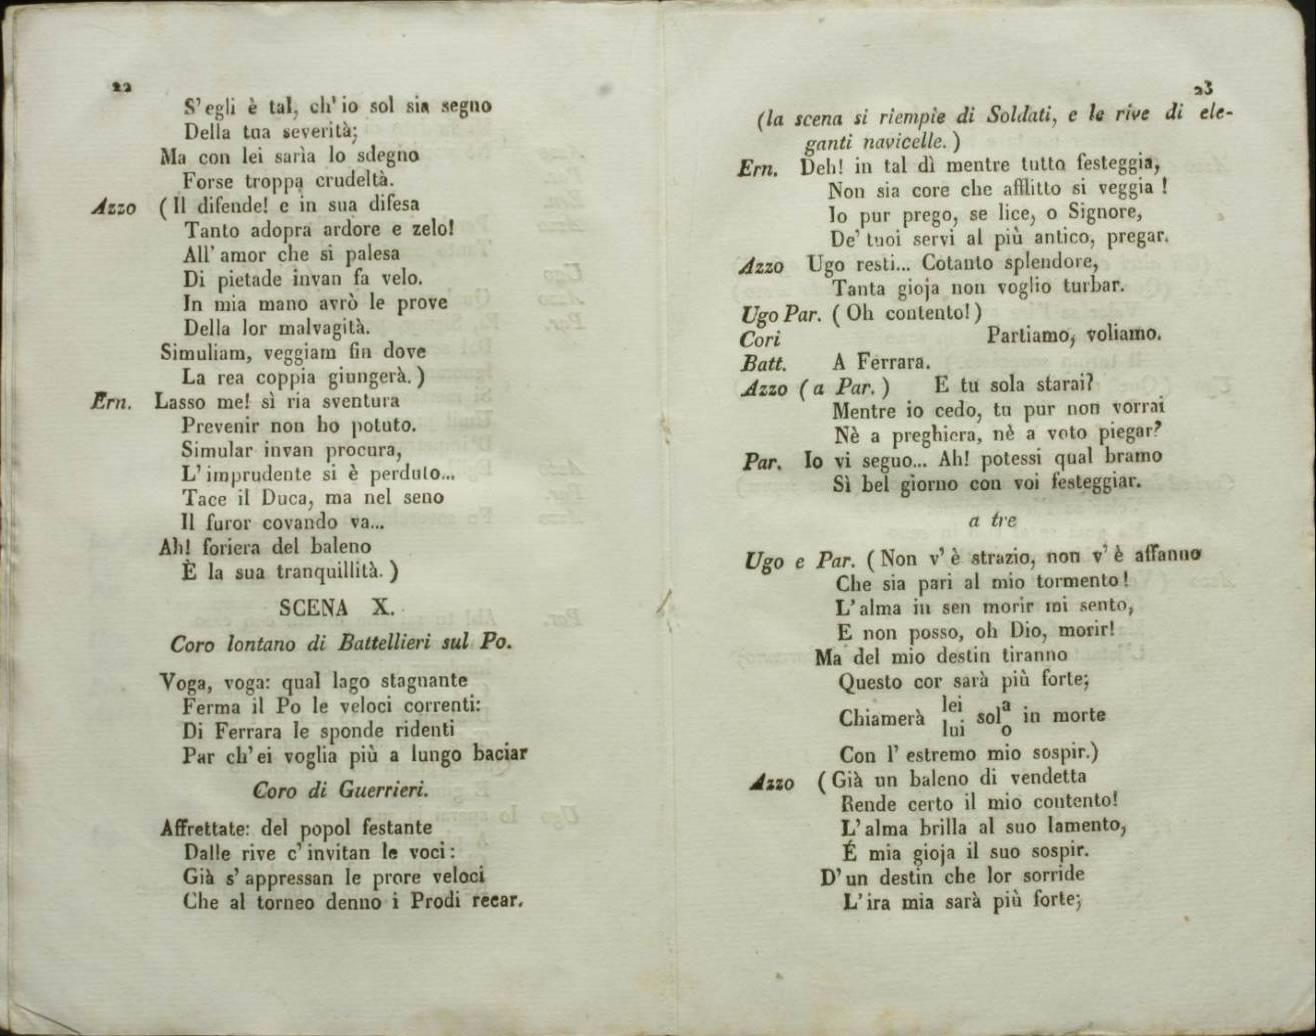 22
S' egli è tal, ch' io sol sia segno
Della tua severità;
Ma con lei sarìa lo sdegno
Forse troppa crudeltà.
Azzo ( Il difende! e in sua difesa
Tanto adopra ardore e zelo!
All' amor che si palesa
Di pietade invan fa velo.
In mia mano avrò le prove
Della lor malvagità.
Simuliam, veggiam fin dove
La rea coppia giungerà. )
Ern. Lasso me! sì ria sventura
Prevenir non ho potuto.
Simular invan procura,
L' imprudente si è perduto...
Tace il Duca, ma nel seno
Il furor covando va...
Ah! foriera del baleno
È la sua tranquillità. )
SCENA X.
Coro lontano di Battellieri sul Po.
Voga, voga: qual lago stagnante
Ferma il Po le veloci correnti:
Di Ferrara le sponde ridenti
Par ch' ei voglia più a lungo baciar
Coro di Guerrieri.
Affrettate: del popol festante
Dalle rive c' invitan le voci:
Già s' appressan le prore veloci
Che al torneo denno i Prodi recar.
23
(la scena si riempie di Soldati, e le rive di ele-
ganti navicelle. )
Ern. Deh! in tal dì mentre tutto festeggia,
Non sia core che afflitto si veggia !
Io pur prego, se lice, o Signore,
De' tuoi servi al più antico, pregar.
Azzo Ugo resti... Cotanto splendore,
Tanta gioja non voglio turbar.
Ugo Par. ( Oh contento! )
Cori Partiamo, voliamo.
Batt. A Ferrara.
Azzo ( a Par. ) E tu sola starai?
Mentre io cedo, tu pur non vorrai
Nè a preghiera, nè a voto piegar?
Par. Io vi seguo... Ah! potessi qual bramo
Sì bel giorno con voi festeggiar.
a tre
Ugo e Par. ( Non v' è strazio, non v' è affanno
Che sia pari al mio tormento !
L' alma in sen morir mi sento,
E non posso, oh Dio, morir!
Ma del mio destin tiranno
Questo cor sarà più forte;
lei a
Chiamerà sol in morte
lui o
Con l' estremo mio sospir.)
Azzo ( Già un baleno di vendetta
Rende certo il mio contento!
L' alma brilla al suo lamento,
É mia gioja il suo sospir.
D' un destin che lor sorride
L' ira mia sarà più forte;